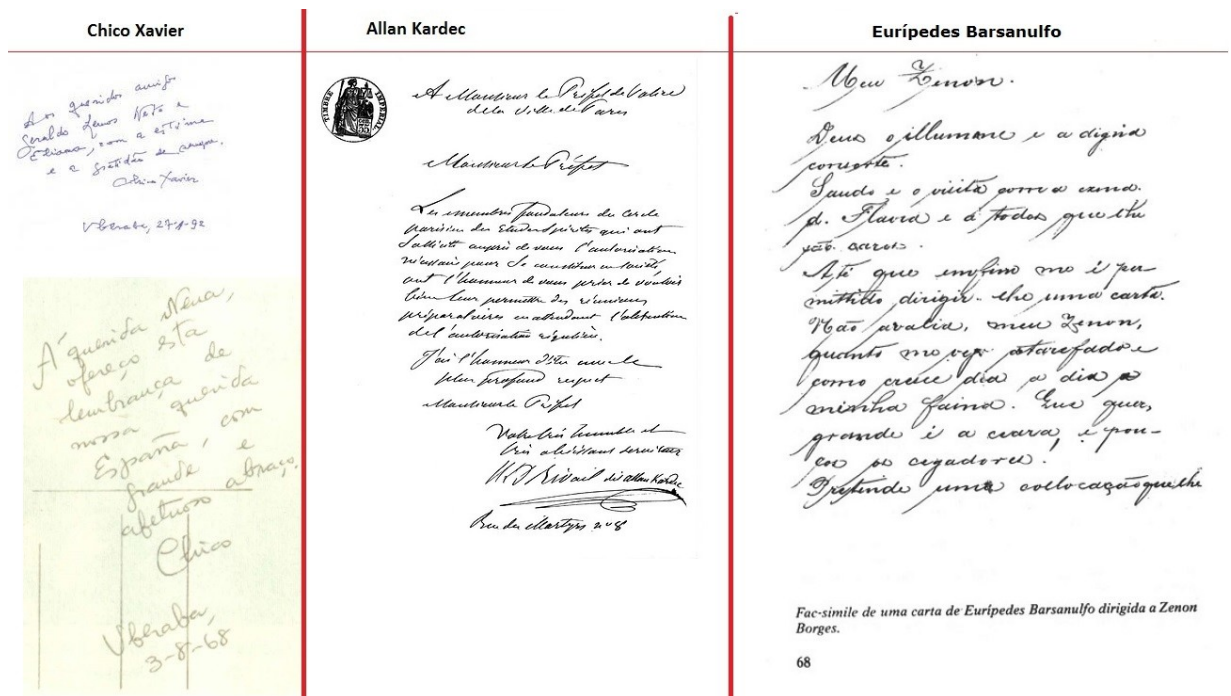 Chico Xavier
Aos queridos amigos
Geraldo Lemos Neto e
Eliana, com a estima
e a gratidão de sempre.
Chico Xavier
Uberaba, 27-1-92
À querida Nena,
ofereço esta
lembrança de
nossa querida
España, com
grande e
afetuoso abraço.
Chico
Uberaba,
3-8-68
Allan Kardec
TIMBRE IMPERIAL
A Monsieur le Préfet de Police
de la Ville de Paris
Monsieur le Préfet
Les membres fondateurs du cercle
parisien des Etudes Spirites qui ont
sollicité auprès de vous l'autorisation
nécessaire pour se constituer en société,
ont l'honneur de vous prier de vouloir
bien leur permettre des réunions
préparatoires en attendant l'obtention
de l'autorisation régulière.
J'ai l'honneur d'être avec le
plus profond respect
Monsieur le Préfet
Votre très humble et
très obéissant serviteur
H L D Rivail dit Allan Kardec
Rue des Martyrs n° 8
Eurípedes Barsanulfo
Meu Zenon.
Deus o illumine e a digna
consorte.
Saudo e o visita com a exma.
d. Flavia e a todos que lhe
são caros.
Até que emfim me é per-
mittido dirigir-lhe uma carta.
Não avalia, meu Zenon,
quanto me vejo atarefado e
como cresce dia a dia a
minha faina. Que quer,
grande é a ceara, e pou-
cos os cegadores!
Pretende uma collocação que lhe
Fac-simile de uma carta de Eurípedes Barsanulfo dirigida a Zenon
Borges.
68